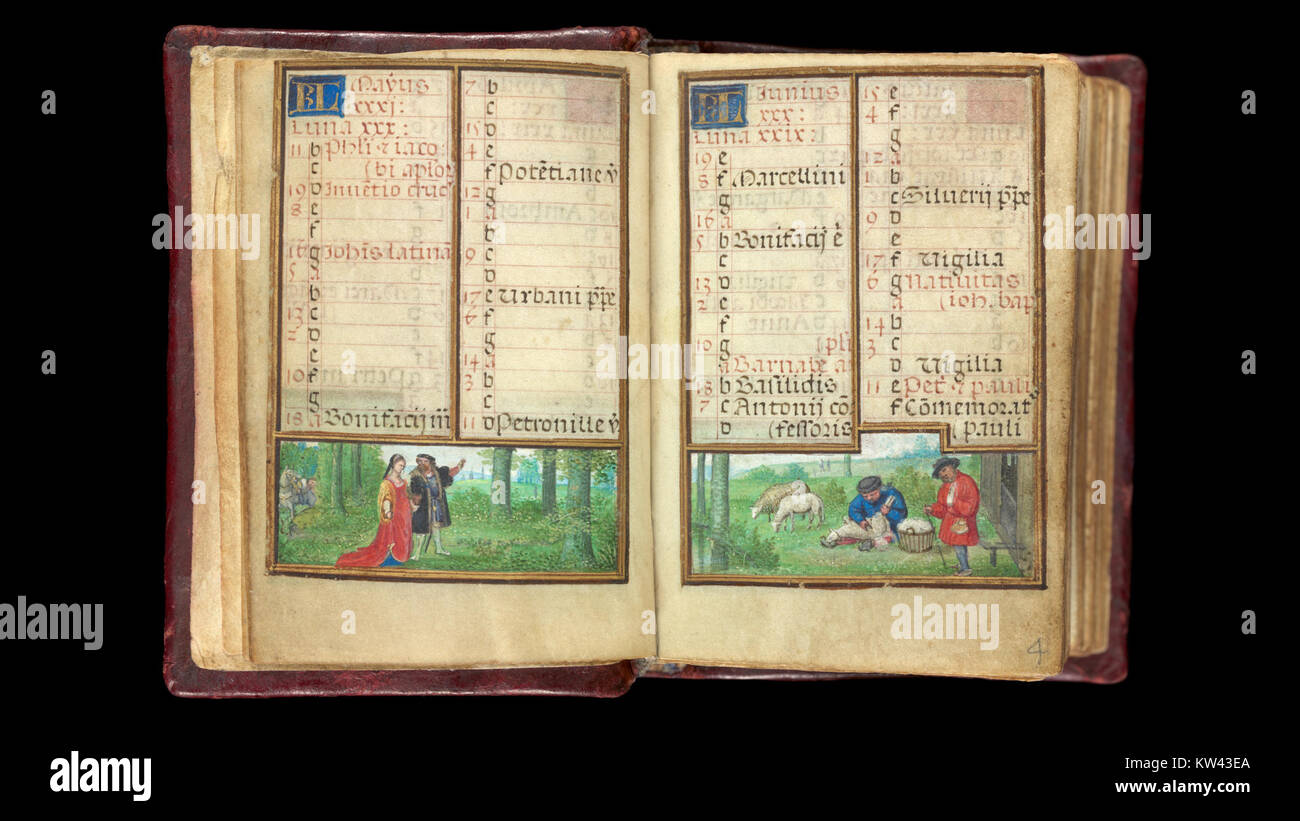 KL Mayus
xxxj:
Luna xxx:
11 b Phli & iaco:
c (bi aplor
19 d Inuētio cruc
8 e
f
16 g Iohīs Latinā
5 a
b
13 c
2 d
e
10 f
g
18 a Bonifacij m̄
7 b
c
15 d
4 e
f Potētiane v̄
12 g
1 a
b
9 c
d
17 e Urbani pp̄e
6 f
g
14 a
3 b
c
11 d Petronille v̄
KL Iunius
xxx:
Luna xxix:
19 e
8 f Marcellini
g
16 a
5 b Bonifacij ē
c
13 d
2 e
f
10 g (pli
a Barnabe a
18 b Basilidis
7 c Antonij cō
d (fessoris
15 e
4 f
g
12 a
1 b
c Siluerij pp̄e
9 d
e
17 f Vigilia
6 g Natiuitas
a (ioh. bap
14 b
3 c
d Vigilia
11 e Pet. & pauli
f Cōmemorat
(pauli
4
alamy
a
Image ID: KW43EA
www.alamy.com